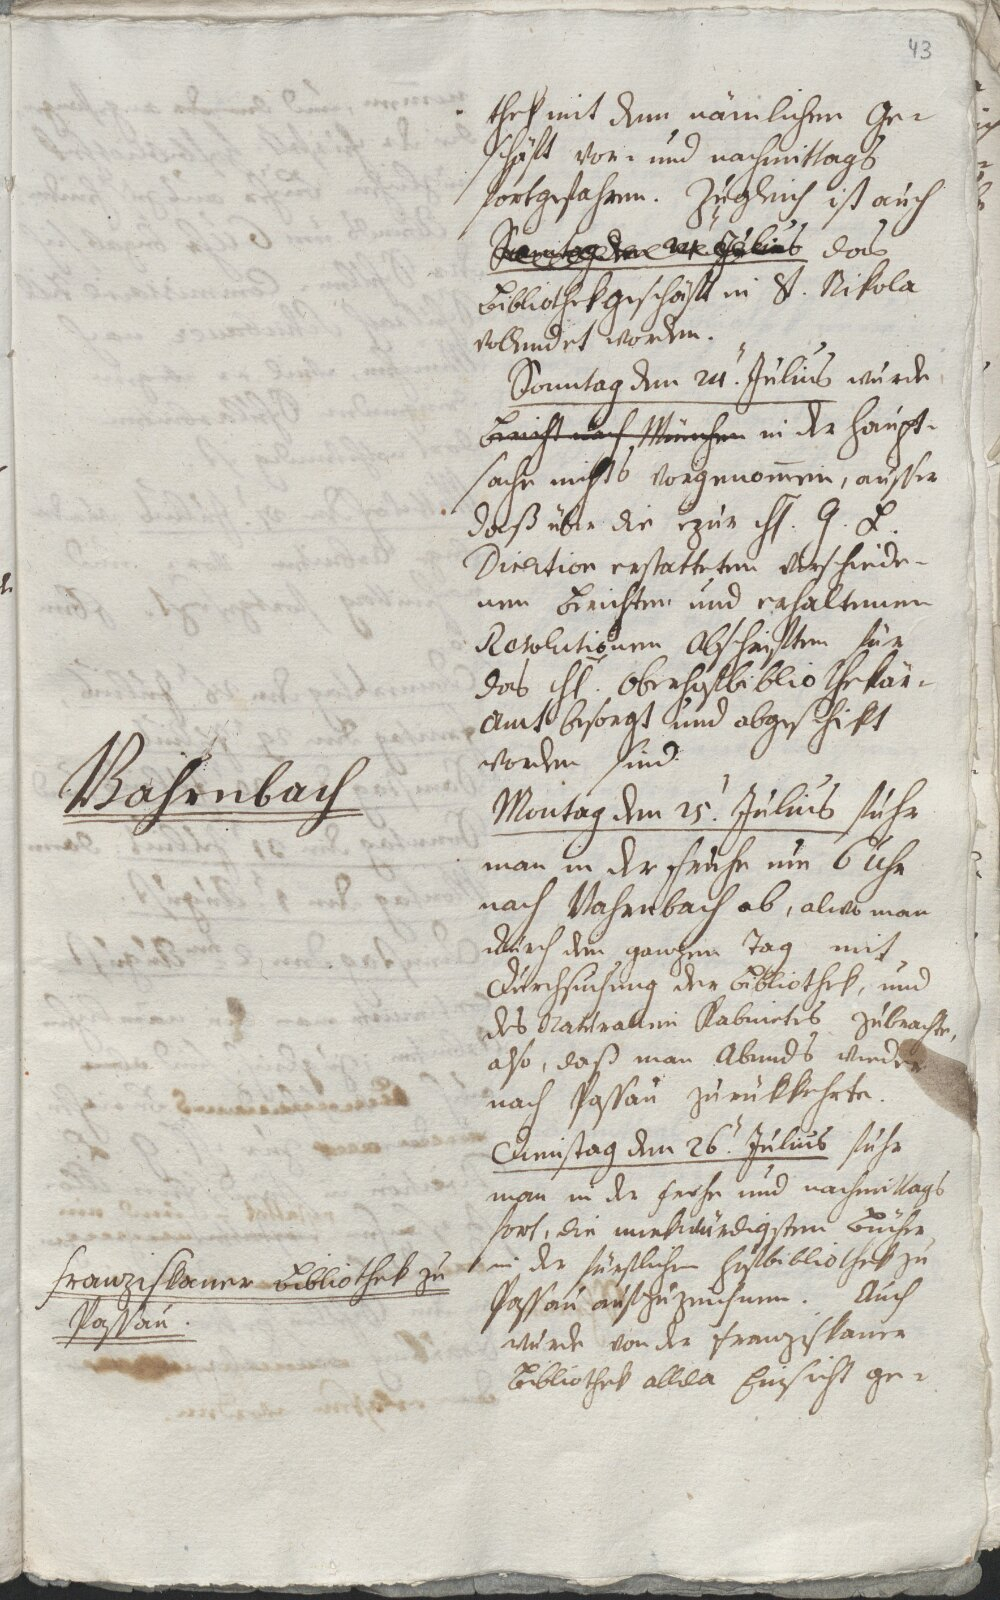 43
thek mit dem nämlichen Ge=
schäft vor= und nachmittags
fortgefahren. Zugleich ist auch
Sonntag den 24. Julius das
Bibliothekgeschäft in St. Nikola
vollendet worden.
Sonntag den 24. Julius wurde
Bericht nach München in der Haupt=
sache nichts vorgenommen, ausser
daß über die
Direction erstatteten verschiede=
nen Berichten und erhaltenen
Resolutionen Abschriften für
das Oberhofbibliothekär=
Amt besorgt und abgeschikt
worden sind.
Vahrnbach
Montag den 25. Julius fuhr
man in der Fruhe um 6 Uhr
nach Vahrnbach ab, alwo man
durch den ganzen Tag mit
Durchsuchung der Bibliothek, und
des Naturalien Kabinetes zubrachte,
also, daß man Abends wieder
nach Passau zurükkehrte.
Dienstag den 26. Julius fuhr
man in der Fruhe und nachmittags
fort, die merkwürdigsten Bücher
in der fürstlichen Hofbibliothek zu
Passau aufzuzeichnen. Auch
wurde von der Franziskaner
Bibliothek allda Einsicht ge=
Franziskaner Bibliothek zu
Passau.